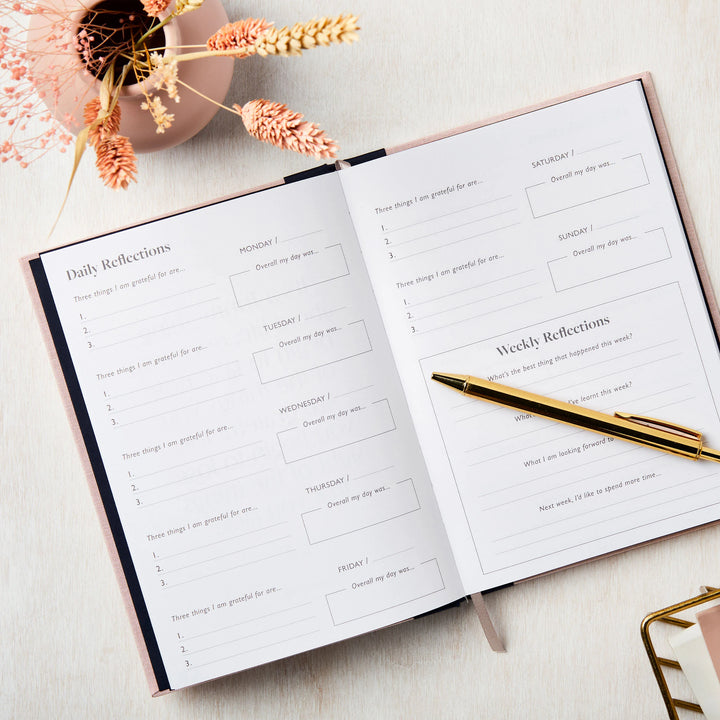 Daily Reflections
MONDAY /
Three things I am grateful for are...
Overall my day was...
1.
2.
3.
TUESDAY /
Three things I am grateful for are...
Overall my day was...
1.
2.
3.
WEDNESDAY /
Three things I am grateful for are...
Overall my day was...
1.
2.
3.
THURSDAY /
Three things I am grateful for are...
Overall my day was...
1.
2.
3.
FRIDAY /
Three things I am grateful for are...
Overall my day was...
1.
2.
3.
SATURDAY /
Three things I am grateful for are...
Overall my day was...
1.
2.
3.
SUNDAY /
Three things I am grateful for are...
Overall my day was...
1.
2.
3.
Weekly Reflections
What's the best thing that happened this week?
I've learnt this week?
What I am looking forward
Next week, I'd like to spend more time...